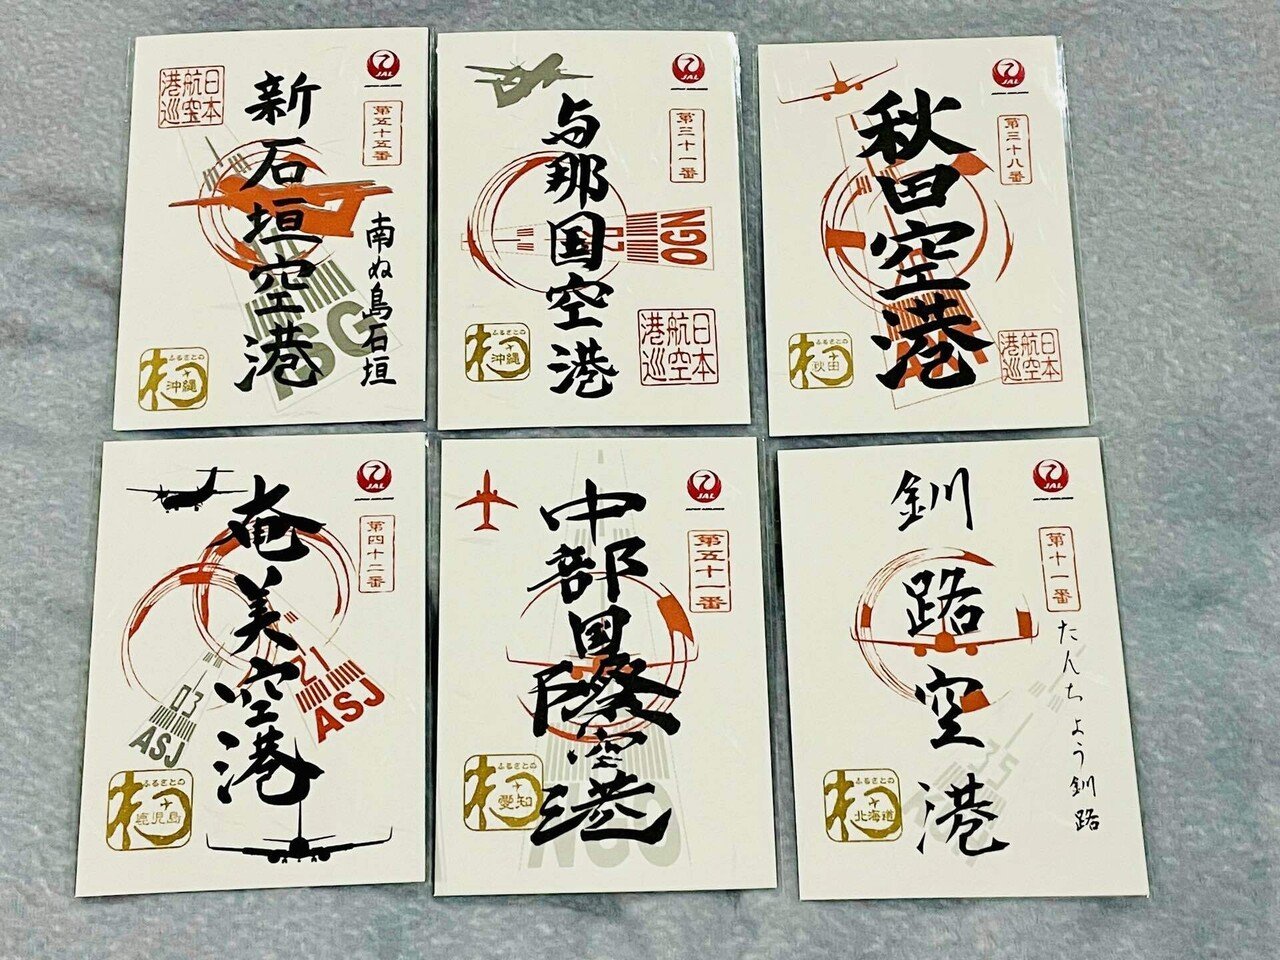 日本
航空
港巡
JAL
JAPAN AIRLINES
第五十五番
新石垣空港
南ぬ島石垣
ISG
ふるさとの
沖縄
JAL
JAPAN AIRLINES
第三十一番
与那国空港
OGN
ふるさとの
沖縄
日本
航空
港巡
JAL
JAPAN AIRLINES
第三十八番
秋田空港
ふるさとの
秋田
日本
航空
港巡
JAL
JAPAN AIRLINES
第四十二番
奄美空港
21
ASJ
03
ASJ
ふるさとの
鹿児島
JAL
JAPAN AIRLINES
第五十一番
中部国際空港
NGO
ふるさとの
愛知
JAL
JAPAN AIRLINES
第十一番
釧路空港
たんちょう釧路
ふるさとの
北海道